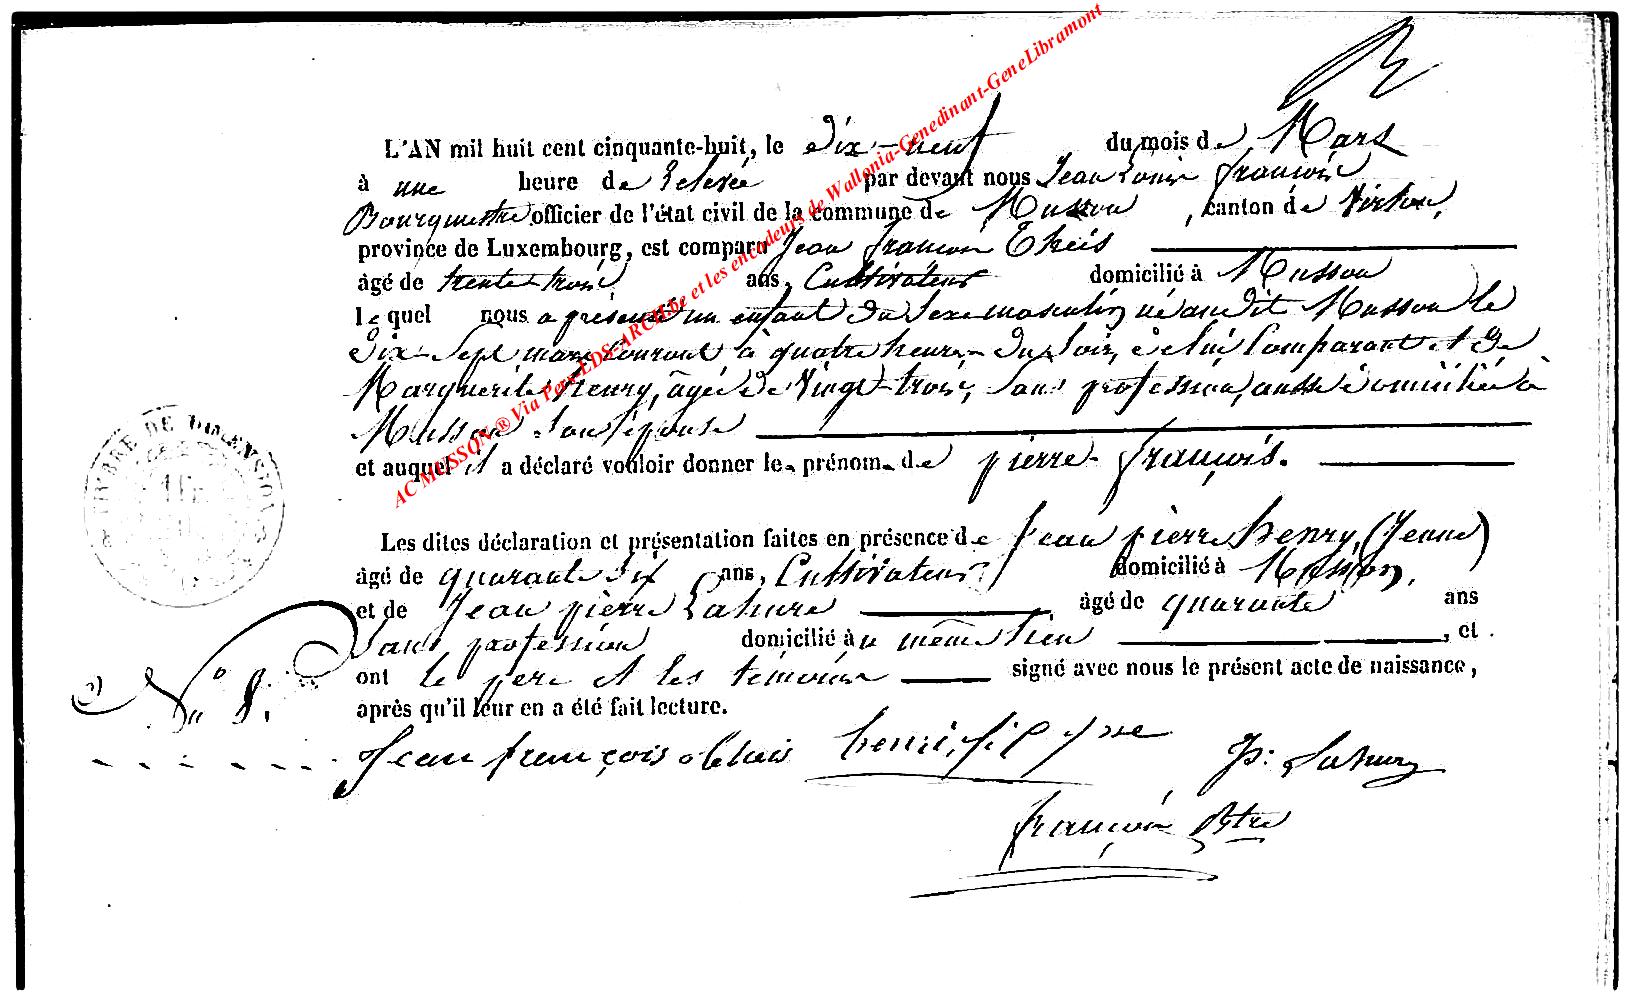 L'AN mil huit cent cinquante-huit, le dix-neuf du mois de Mars
à une heure de relevée par devant nous Jean Louis François
Bourguestre officier de l'état civil de la commune de Musson, canton de Virton,
province de Luxembourg, est comparu Jean François Theis
âgé de trente-trois ans, Cultivateur domicilié à Musson
lequel nous a présenté un enfant du Sexe masculin, né audit Musson le
dix-Sept mars courant à quatre heures du Soir, de lui Comparant et de
Marguerite Henry, âgée de Vingt-trois, Sans profession, aussi domiciliée à
Musson Son épouse
et auquel il a déclaré vouloir donner les prénoms de pierre françois.
Les dites déclaration et présentation faites en présence de Jean pierre henry, (Jeune)
âgé de quarante Six ans, Cultivateur domicilié à Musson,
et de Jean pierre Lahure âgé de quarante ans
Sans profession domicilié au même lieu, et
ont le père et les témoins signé avec nous le présent acte de naissance,
après qu'il leur en a été fait lecture.
N° 8.
Jean françois Theis henri, J: P Jne Jp: Lahure
françois Btre
AC MUSSON ® Via Pere EDS-ARCH.be et les encodeurs de Wallonia-Genedinant-GeneLibramont
TIMBRE DE DIMENSION